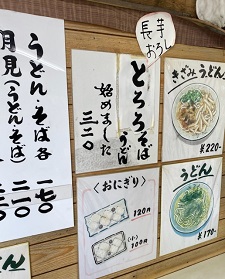 長芋
おろし
とろろそば
うどん
始めました
三二〇
きざみうどん
¥220-
うどん・そば各
一七〇
月見(うどん・そば)
二一〇
二二〇
〈おにぎり〉
120円
(小)
100円
うどん
¥170-
うどん